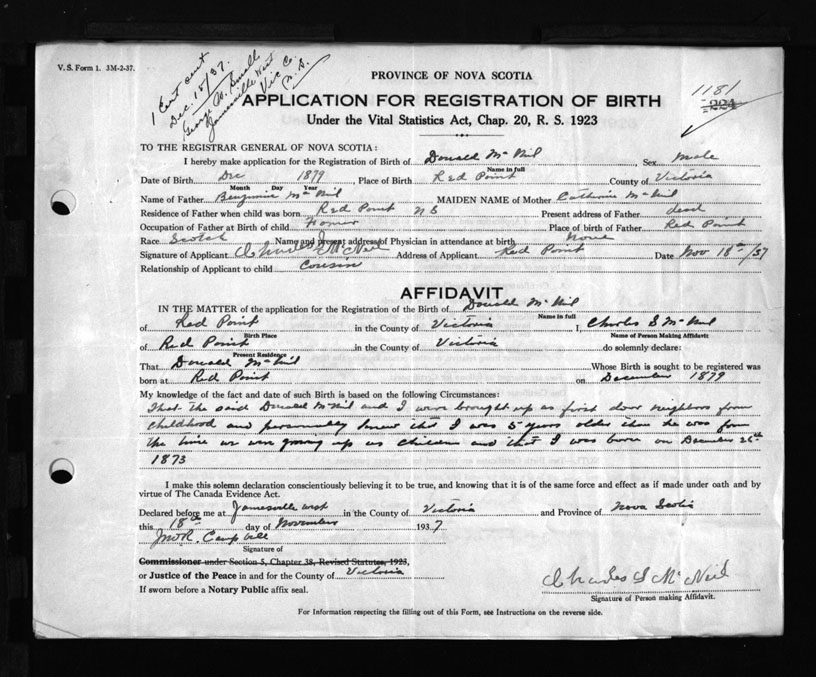 V. S. Form 1. 3M-2-37.
1 Cert sent
Dec. 15/37.
George W. Small
Jamesville West
Vic Co.
N. S.
PROVINCE OF NOVA SCOTIA
1181
224
APPLICATION FOR REGISTRATION OF BIRTH
Under the Vital Statistics Act, Chap. 20, R. S. 1923
TO THE REGISTRAR GENERAL OF NOVA SCOTIA:
I hereby make application for the Registration of Birth of Donald McNeil Sex Male
Name in full
Date of Birth Dec 1879, Place of Birth Red Point County of Victoria
Month Day Year
Name of Father Benjamin McNeil MAIDEN NAME of Mother Catherine McNeil
Residence of Father when child was born Red Point N S Present address of Father dead
Occupation of Father at Birth of child Farmer Place of birth of Father Red Point
Race Scotch Name and present address of Physician in attendance at birth None
Signature of Applicant Charles S McNeil Address of Applicant Red Point Date Nov 18th/37
Relationship of Applicant to child Cousin
AFFIDAVIT
IN THE MATTER of the application for the Registration of the Birth of Donald McNeil
Name in full
of Red Point in the County of Victoria I, Charles S McNeil
Birth Place Name of Person Making Affidavit
of Red Point in the County of Victoria do solemnly declare:
Present Residence
That Donald McNeil Whose Birth is sought to be registered was
born at Red Point on December 1879
My knowledge of the fact and date of such Birth is based on the following Circumstances:
That the said Donald McNeil and I were brought up as first door neighbors from
childhood and personally knew that I was 5 years older than he was from
the time we were growing up as children and that I was born on December 26th
1873
I make this solemn declaration conscientiously believing it to be true, and knowing that it is of the same force and effect as if made under oath and by
virtue of The Canada Evidence Act.
Declared before me at Jamesville west in the County of Victoria and Province of Nova Scotia
this 18th day of November 1937
Campbell
Signature of
Commissioner under Section 5, Chapter 38, Revised Statutes, 1923,
or Justice of the Peace in and for the County of Victoria
If sworn before a Notary Public affix seal.
Charles S McNeil
Signature of Person making Affidavit.
For Information respecting the filling out of this Form, see Instructions on the reverse side.